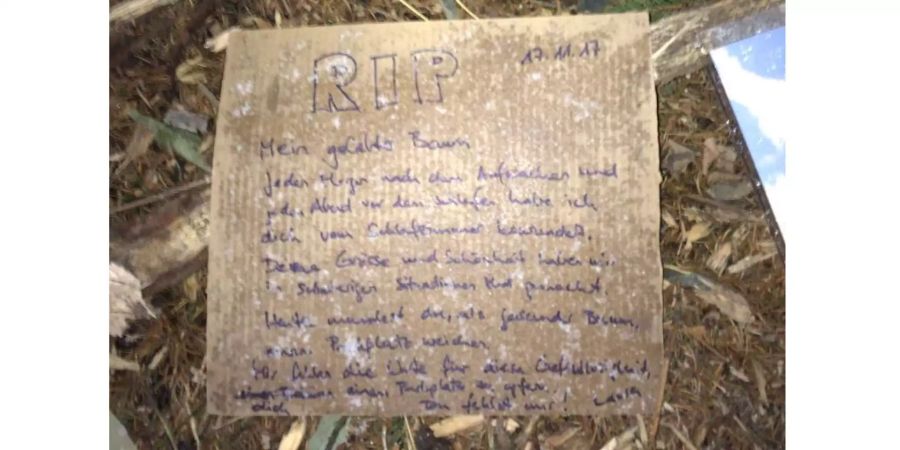 17.11.17
RIP
Mein geliebter Baum
Jeden Morgen nach dem Aufwachen und
jeden Abend vor dem schlafen habe ich
dich vom Schlafzimmer bewundert.
Deine Grösse und Schönheit haben mir
in schwierigen Situationen Mut gemacht.
Heute musstest du, als gesunder Baum,
einem Parkplatz weichen.
Mir fehlen die Worte für diese
einen Parkplatz zu opfern.
dich Du fehlst mir!